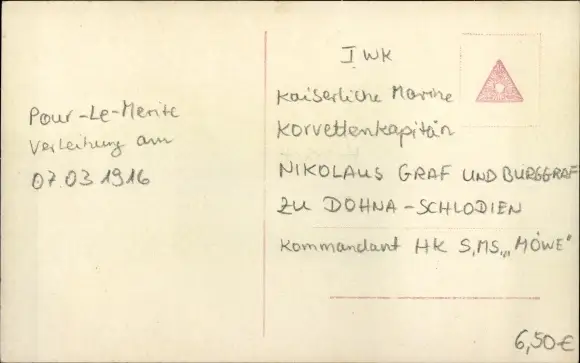 Pour-Le-Merite
Verleihung am
07.03 1916
I WK
Kaiserliche Marine
Korvettenkapitän
NIKOLAUS GRAF UND BURGGRAF
ZU DOHNA-SCHLODIEN
Kommandant HK S.MS. „MÖWE"
6,50€